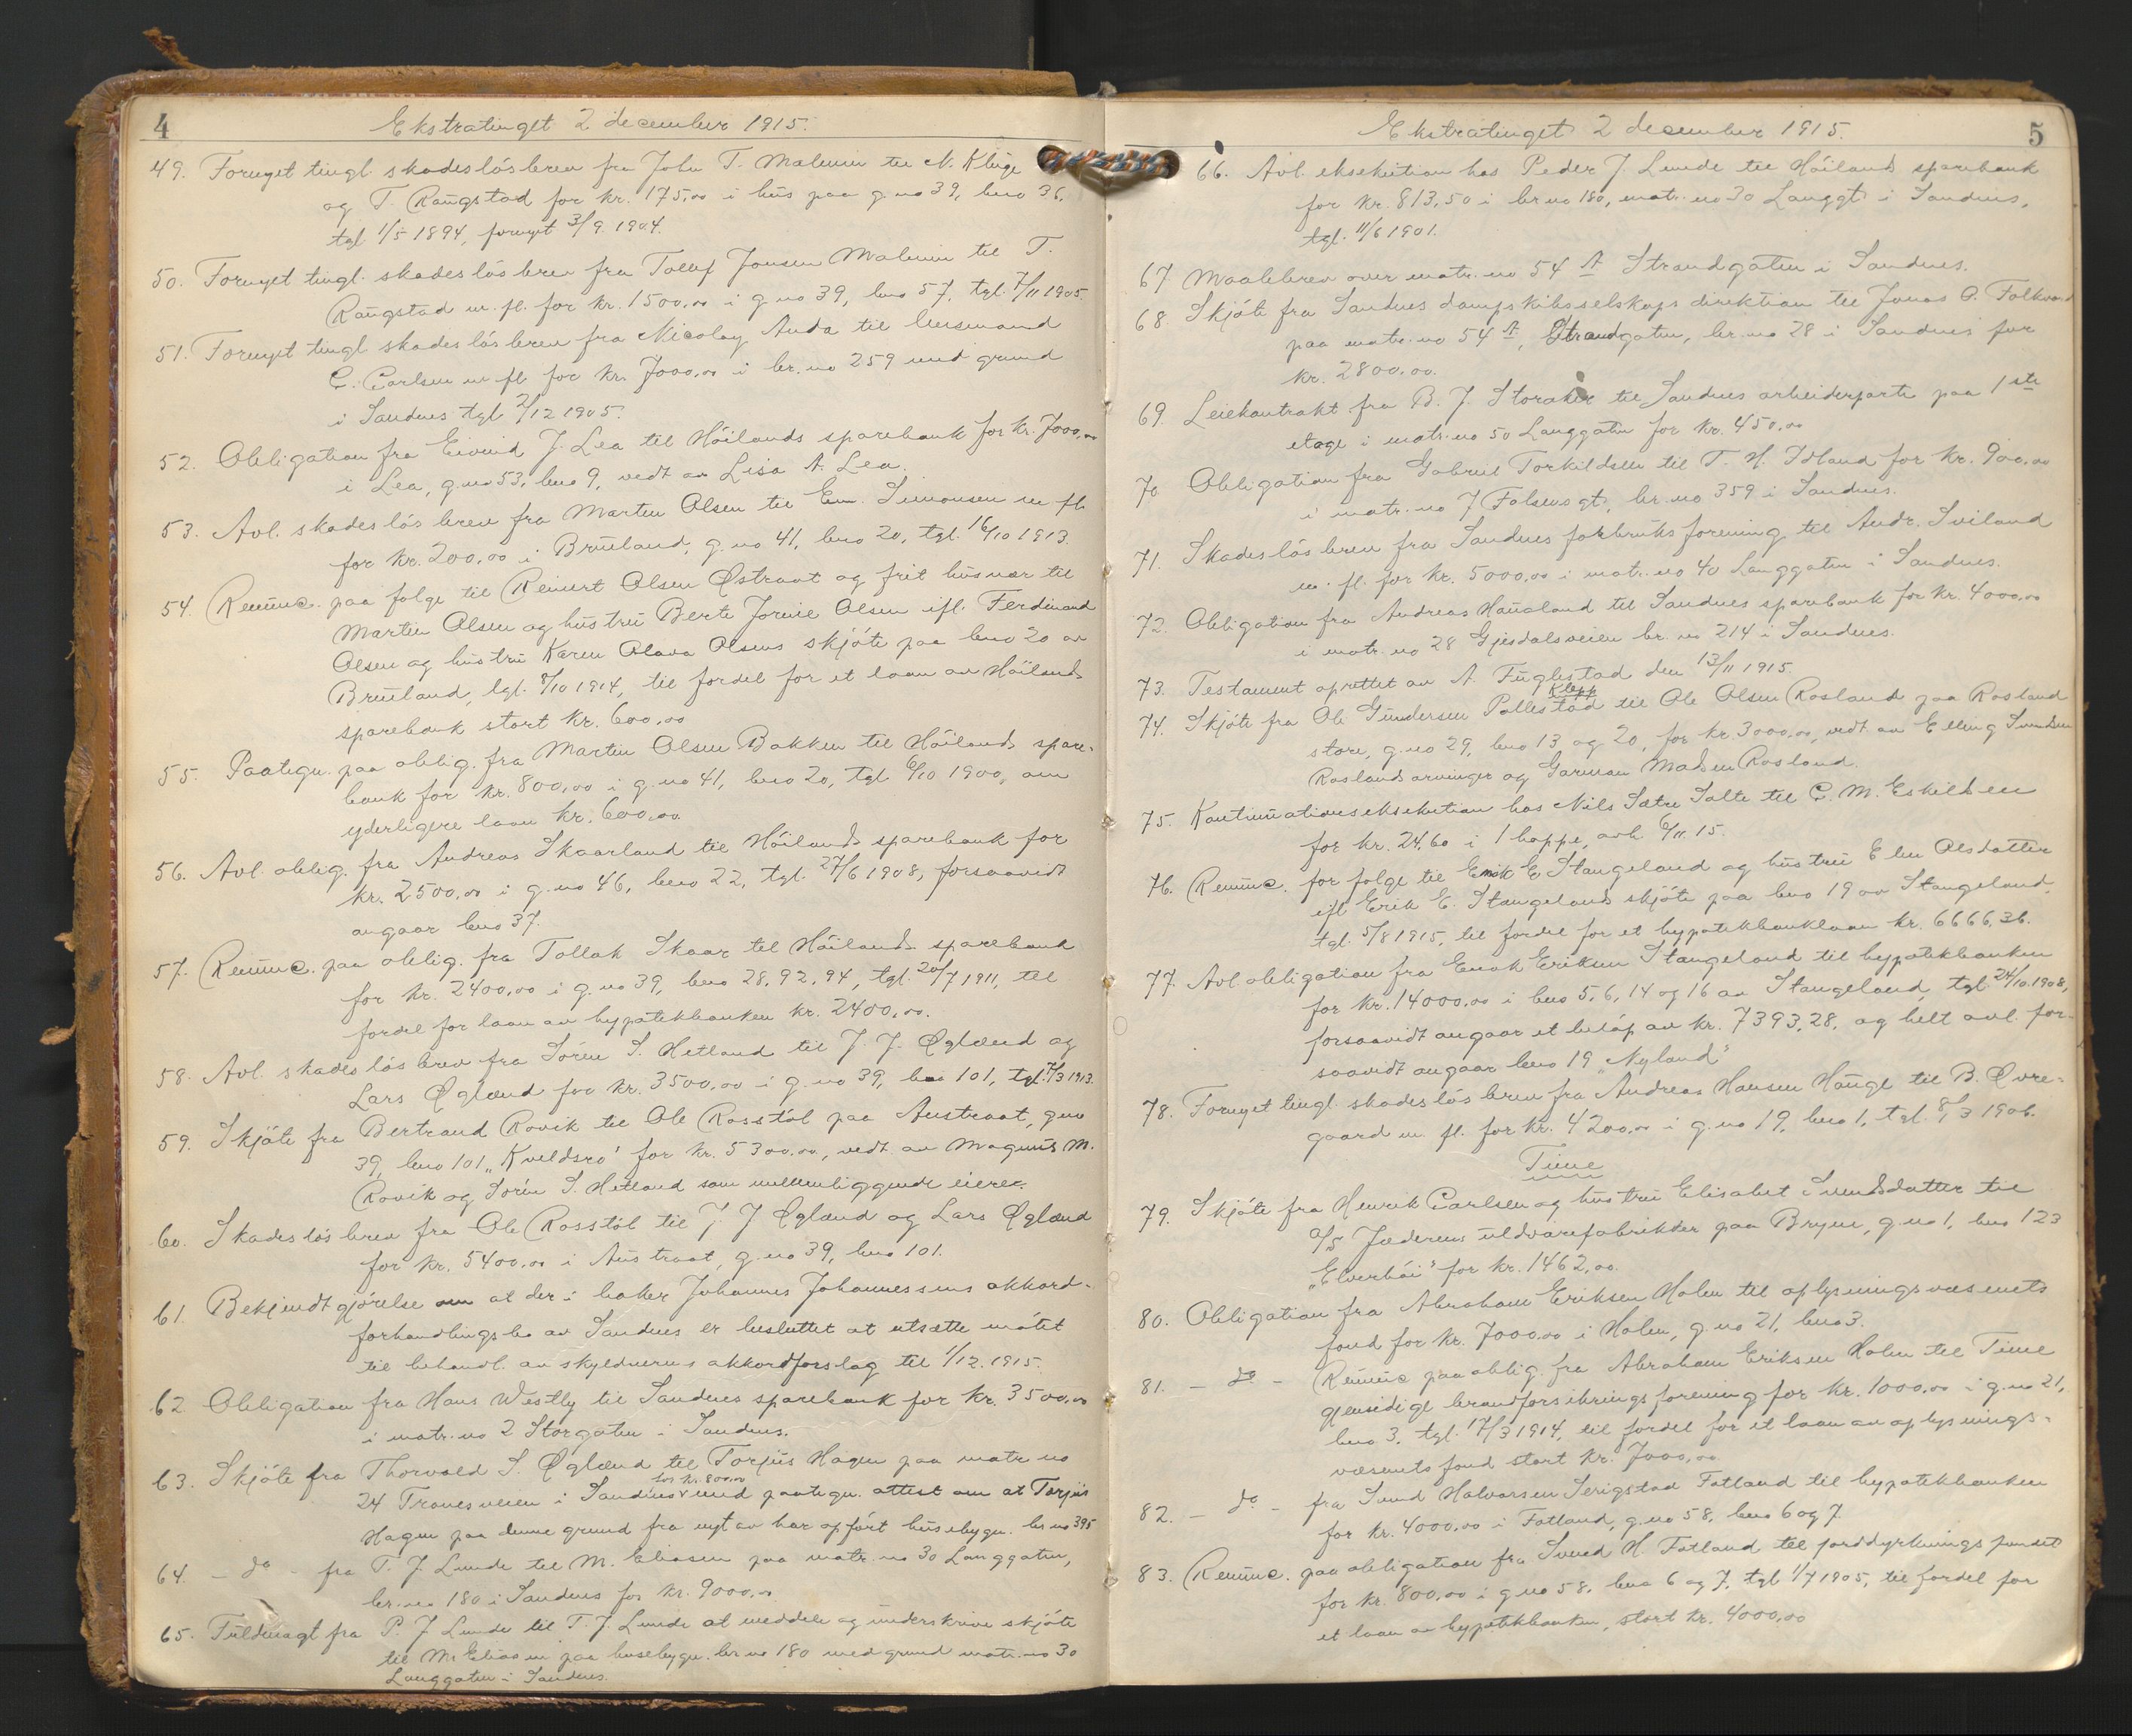 4
Ekstratinget 2 december 1915.
49. Fornyet tingl. skadesløsbrev fra John T. Malmin til N. Kluge
og T. Raugstad for kr. 175,00 i hus paa g.no 39, bno 36,
tgl 1/5 1894, fornyet 3/9 1904.
50. Fornyet tingl. skadesløsbrev fra Tollef Jonsen Malmin til T.
Raugstad m. fl. for kr. 1500,00 i g.no 39, bno 57, tgl. 7/11 1905.
51. Fornyet tingl skadesløsbrev fra Nicolay Auda til lensmand
C. Carlsen m fl for kr. 7000,00 i br. no 259 med grund
i Sandnes tgl 2/12 1905.
52. Obligation fra Eivind J. Lea til Höilands sparebank for kr. 7000,00
i Lea, g.no 53, bno 9, vedt av Lisa A. Lea.
53. Avl. skadesløsbrev fra Martin Olsen til Em. Simonsen m fl.
for kr. 200,00 i Brueland, g.no 41, bno 20, tgl. 16/10 1913.
54. Renunc. paa følge til Reinert Olsen Østraat og frit husvær til
Martin Olsen og hustru Berte Jorine Olsen ifl. Ferdinand
Olsen og hustru Karen Olava Olsens skjöte paa bno 20 av
Brueland, tgl. 8/10 1914, til fordel for et laan av Höilands
sparebank stort kr. 600,00
55. Paategn. paa oblig. fra Martin Olsen Bakken til Höilands spare-
bank for kr. 800,00 i g.no 41, bno 20, tgl. 6/10 1900, om
yderligere laan kr. 600,00
56. Avl. oblig. fra Andreas Skaarland til Höilands sparebank for
kr. 2500,00 i g.no 46, bno 22, tgl. 27/6 1908, forsaavidt
angaar bno 37.
57. Renunc. paa oblig. fra Tollak Skaar til Höilands sparebank
for kr. 2400,00 i g.no 39, bno 28, 92, 94, tgl. 20/7 1911, til
fordel for laan av hypotekbanken kr. 2400,00.
58. Avl. skadesløsbrev fra Sören S. Hetland til J. J. Øglænd og
Lars Øglænd for kr. 3500,00 i g.no 39, bno 101, tgl. 7/3 1913.
59. Skjöte fra Bertrand Rovik til Ole Rosstöl paa Austraat, gno
39, bno 101 „Kveldsro" for kr. 5300,00, vedt. av Magnus M.
Rovik og Sören S. Hetland som mellemliggende eiere.
60. Skadesløsbrev fra Ole Rosstöl til J. J Øglænd og Lars Øglænd
for kr. 5400,00 i Austraat, g.no 39, bno 101.
61. Bekjendtgjörelse om at der i baker Johannes Johannessens akkord-
forhandlingsbo av Sandnes er besluttet at utsætte mötet
til behandl. av skyldnerens akkordforslag til 1/12. 1915.
62 Obligation fra Hans Westly til Sandnes sparebank for kr. 3500,00
i matr. no 2 Storgaten i Sandnes.
63. Skjöte fra Thorvald S. Øglænd til Torjus Hagen paa matr no
for kr. 800,00
24 Tronesveien i Sandnes v med paategn. attest om at Torjus
Hagen paa denne grund fra nyt av har opfört husebygn. br no 395
64. – do – fra T. J. Lunde til M. Eliasen paa matr. no 30 Langgaten,
br. no 180 i Sandnes for kr. 9000,00
65. Fuldmagt fra P. J Lunde til T. J. Lunde at meddele og underskrive skjöte
til M. Eliasen paa husebygn. br no 180 med grund matr. no 30
Langgaten i Sandnes.
Ekstratinget 2 december 1915.
5
66. Avl. eksekution hos Peder J. Lunde til Höilands sparebank
for kr. 813,50 i br no 180, matr. no 30 Langgt i Sandnes,
tgl. 11/6 1901.
67 Maalebrev over matr. no 54 A Strandgaten i Sandnes.
68 Skjöte fra Sandnes dampskibsselskaps direktion til Jonas O. Folkvord
paa matr. no 54 A, Strandgaten, br. no 28 i Sandnes for
kr. 2800,00.
69. Leiekontrakt fra B. J. Storaker til Sandnes arbeiderparti paa 1ste
etage i matr. no 50 Langgaten for kr. 450,00
70 Obligation fra Gabriel Torkildsen til T. H. Idland for kr. 900,00
i matr. no 7 Falsensgt, br. no 359 i Sandnes.
71. Skadesløsbrev fra Sandnes forbruksforening til Andr. Sviland
m. fl. for kr. 5000,00 i matr. no 40 Langgaten i Sandnes.
72. Obligation fra Andreas Haualand til Sandnes sparebank for kr. 4000,00
i matr. no 28 Gjesdalsveien br. no 214 i Sandnes.
73. Testament oprettet av A. Fuglestad den 13/11 1915.
Klepp
74. Skjöte fra Ole Gundersen Pollestad til Ole Olsen Rosland paa Rosland
store, g.no 29, bno 13 og 20, for kr 3000,00, vedt. av Elling Svendsen
Roslands arvinger og Garman Madsen Rosland.
75. Kontinuationseksekution hos Nils Sætre Salte til C. M. Eskildsen
for kr. 24,60 i 1 hoppe, avh. 6/11. 15.
76. Renunc. for følge til Enok E Stangeland og hustru Elen Olsdatter
ifl Erik E. Stangelands skjöte paa bno 19 av Stangeland,
tgl. 5/8 1915, til fordel for et hypotekbanklaan kr. 6666,36.
77. Avl obligation fra Enok Eriksen Stangeland til hypotekbanken
for kr. 14000,00 i bno 5, 6, 14 og 16 av Stangeland, tgl. 24/10 1908,
forsaavidt angaar et belöp av kr. 7393,28, og helt avl. for-
saavidt angaar bno 19 „Nyland"
78. Fornyet tingl. skadesløsbrev fra Andreas Hansen Hauge til B. Øvre-
gaard m. fl. for kr. 4200,00 i g.no 19, bno 1, tgl. 8/3 1906.
Time
79. Skjöte fra Henrik Carlsen og hustru Elisabet Svendsdatter til
A/S Jæderens uldvarefabrikker paa Bryne, g.no 1, bno 123
„Elverhöi" for kr. 1462,00.
80. Obligation fra Abraham Eriksen Holen til oplysningsvæsenets
fond for kr. 7000,00 i Holen, g.no 21, bno 3.
81. – do – Renunc paa oblig. fra Abraham Eriksen Holen til Time
gjensidige brandforsikringsforening for kr. 1000,00 i g.no 21,
bno 3, tgl. 17/3 1914, til fordel for et laan av oplysnings-
væsenets fond stort kr. 7000,00.
82. – do – fra Svend Halvorsen Serigstad Fotland til hypotekbanken
for kr. 4000,00 i Fotland, g.no 58, bno 6 og 7.
83. Renunc. paa obligation fra Svend H. Fotland til jorddyrkningsfondet
for kr. 800,00 i g.no 58, bno 6 og 7, tgl 1/7 1905, til fordel for
et laan av hypotekbanken, stort kr. 4000,00